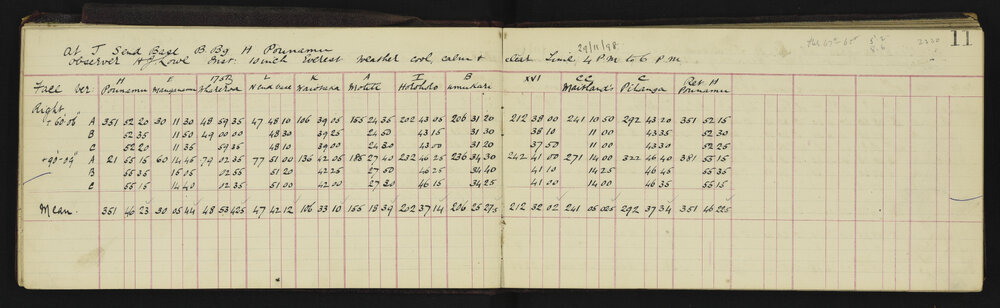 29/11/98
11
At J Send Base B. Bg H Pounamu
Observer H J Lowe Inst. 10 inch Everest Weather cool, calm & clear Time 4 P.M to 6 P.M
2220
H E L K A I B XVI CC C Ret H
Face Ver Pounamu N End Base Waiotaka Motett Horohoro Umukari Maitland's Pihanga Pounamu
Right
+60°05" A 351 52 20 30 11 30 48 59 35 47 48 10 106 39 05 155 24 35 202 43 05 206 31 20 212 38 00 241 10 50 292 43 20 351 52 15
B 52 35 11 50 49 00 00 48 30 39 25 24 50 43 15 31 30 38 10 11 00 43 35 52 30
C 52 20 11 35 59 35 48 10 39 00 24 30 43 00 31 20 37 50 11 00 43 30 52 25
+90°09" A 21 55 15 60 14 45 79 02 35 77 51 00 136 42 05 185 27 40 232 46 25 236 34 30 242 41 00 271 14 00 322 46 40 381 55 15
B 55 35 15 05 02 55 51 20 42 25 27 50 46 25 34 40 41 10 14 25 46 45 55 35
C 55 15 14 40 02 35 51 00 42 00 27 30 46 15 34 25 41 00 14 00 46 35 55 15
Mean 351 46 23 30 05 44 48 53 42.5 47 42 12 106 33 10 155 18 39 202 37 14 206 25 27.5 212 32 02 241 05 02.5 292 37 34 351 46 22.5